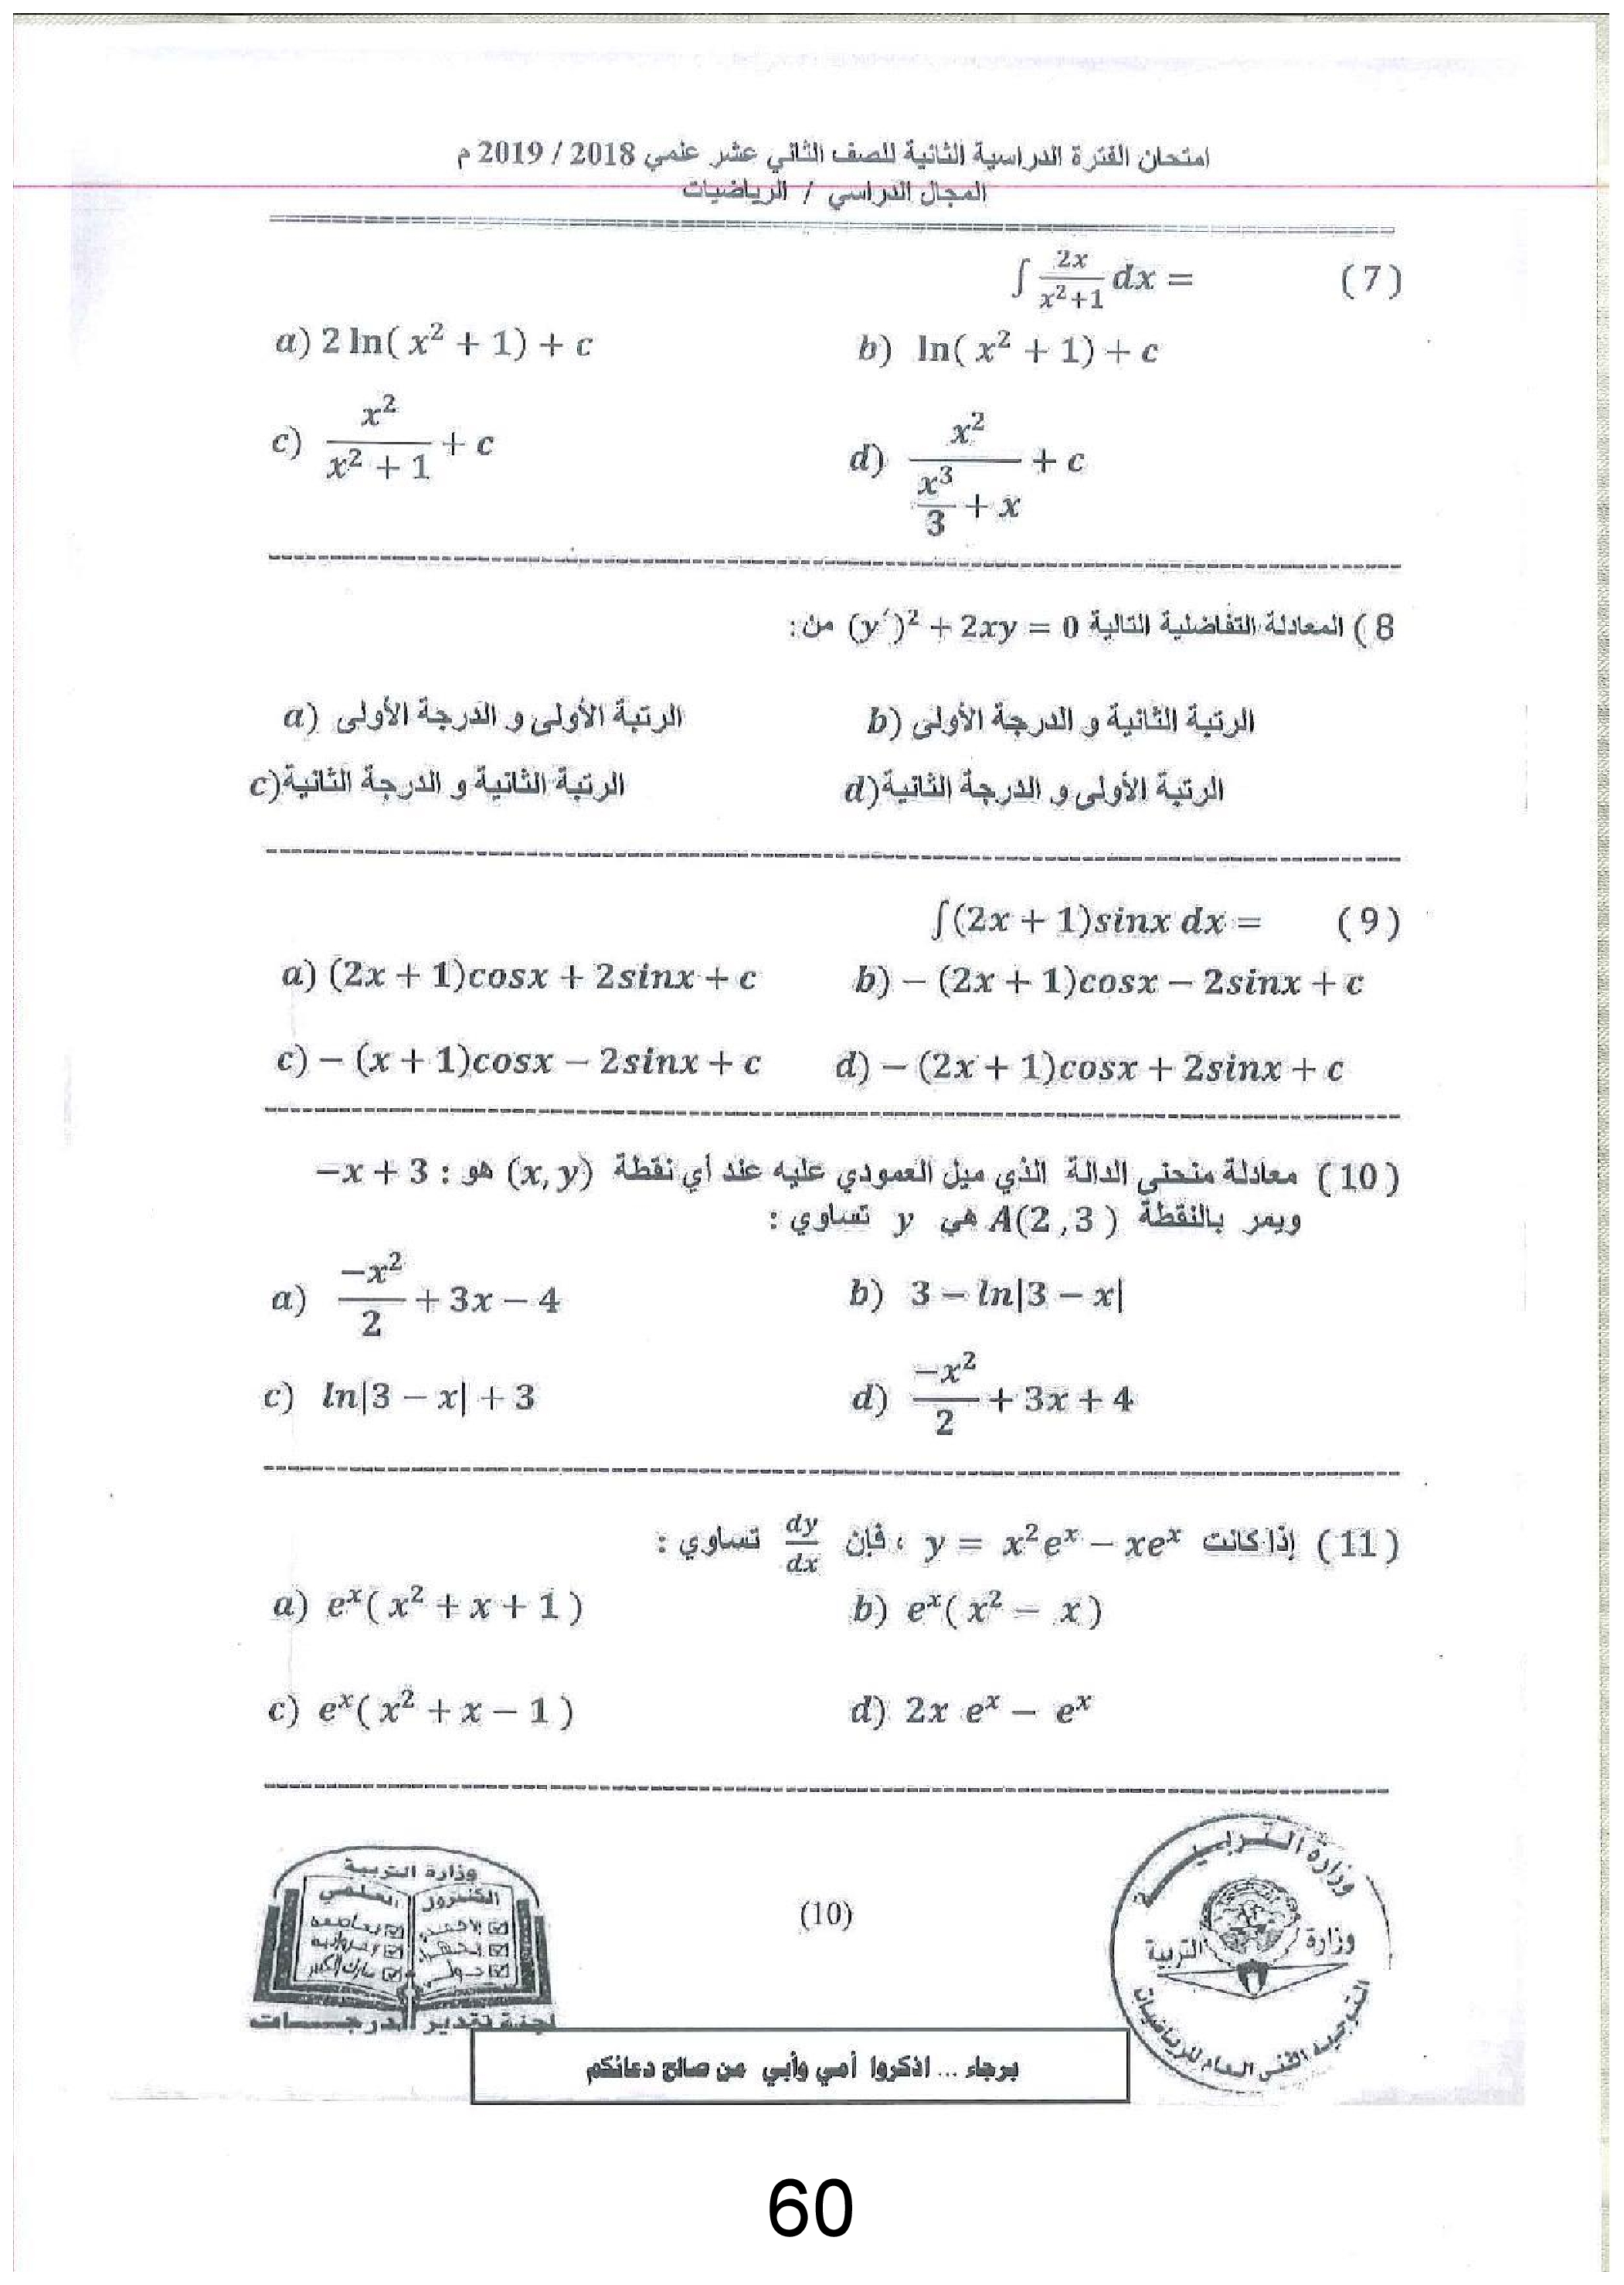 امتحان الفترة الدراسية الثانية للصف الثاني عشر علمي 2018 / 2019 م
المجال الدراسي / الرياضيات
(7) ∫ 2x/(x²+1) dx =
a) 2 ln( x² + 1) + c    b) ln( x² + 1) + c
c) x²/(x² + 1) + c    d) x²/(x³/3 + x) + c
8) المعادلة التفاضلية التالية (y′)² + 2xy = 0 من:
a) الرتبة الأولى و الدرجة الأولى    b) الرتبة الثانية و الدرجة الأولى
c) الرتبة الثانية و الدرجة الثانية    d) الرتبة الأولى و الدرجة الثانية
(9) ∫(2x + 1)sinx dx =
a) (2x + 1)cosx + 2sinx + c    b) − (2x + 1)cosx − 2sinx + c
c) − (x + 1)cosx − 2sinx + c    d) − (2x + 1)cosx + 2sinx + c
(10) معادلة منحنى الدالة الذي ميل العمودي عليه عند أي نقطة (x, y) هو : −x + 3
ويمر بالنقطة A(2 ,3 ) هي y تساوي :
a) −x²/2 + 3x − 4    b) 3 − ln|3 − x|
c) ln|3 − x| + 3    d) −x²/2 + 3x + 4
(11) إذا كانت y = x²eˣ − xeˣ ، فإن dy/dx تساوي :
a) eˣ( x² + x + 1 )    b) eˣ( x² − x )
c) eˣ( x² + x − 1 )    d) 2x eˣ − eˣ
وزارة التربية
وزارة التربية
(10)
وزارة التربية
التوجيه الفني العام للرياضيات
لجنة تقدير الدرجـــــات
برجاء ... اذكروا أمي وأبي من صالح دعائكم
60